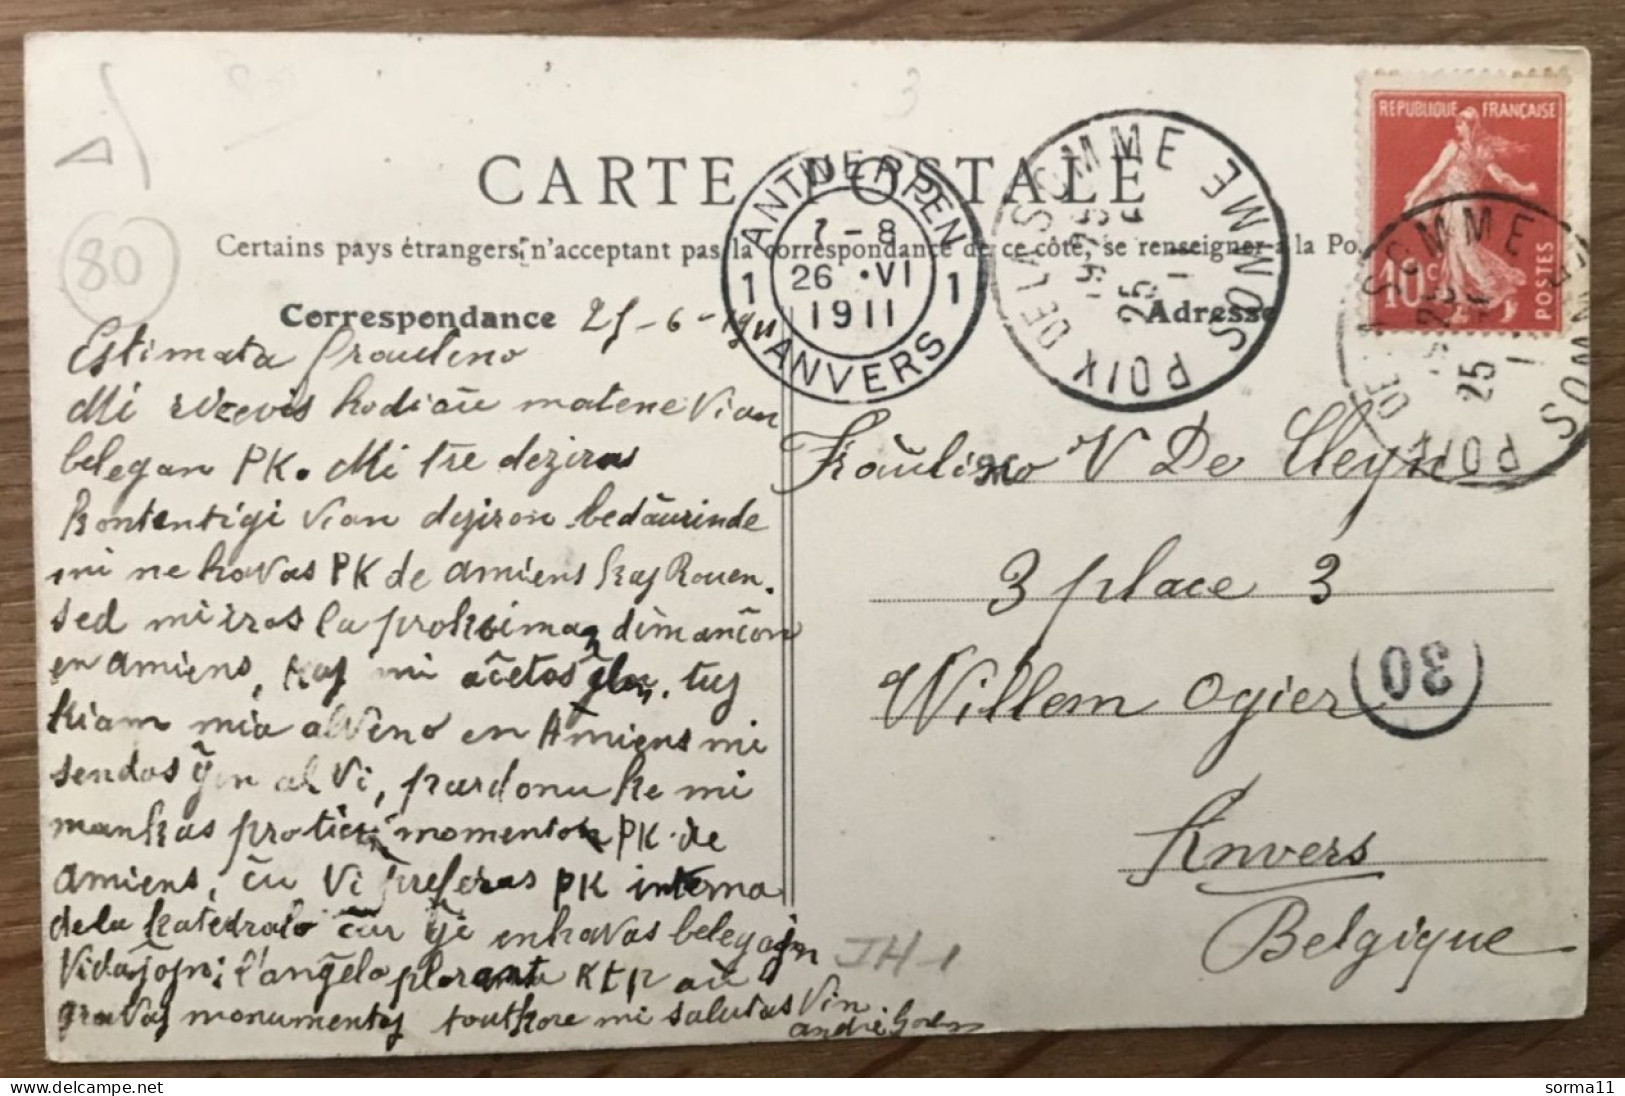 CARTE POSTALE
Certains pays étrangers n'acceptant pas la correspondance de ce côté, se renseigner à la Po
Correspondance
Adresse
25-6-1911
Estimata fraulino
Mi ricevis hodiaŭ matene Vian
belegan PK. Mi tre deziras
Kontentigi Vian deziron bedaŭrinde
mi ne havas PK de Amiens Kaj Rouen.
sed mi iros la proksiman dimanĉon
en Amiens, Kaj mi aĉetos ĝin, tuj
kiam mia alveno en Amiens mi
sendos ĝin al Vi, pardonu ke mi
mankas pro tiu momento PK de
Amiens, ĉu Vi preferas PK interna
de la Katedralo ĉar ĝi enhavas belegajn
Vidaĵojn; l'anĝelo ploranta KTP aŭ
gravaj monumentoj toutkore mi salutas Vin
andré
Fraŭlino V De Cleyn
3 place 3
Willem Ogier
Anvers
Belgique
ANTWERPEN
1 7-8 1
26 ·VI
1911
ANVERS
POIX DE LA SOMME SOMME
25
REPUBLIQUE FRANÇAISE
10c
POSTES
POIX DE LA SOMME SOMME
25
30
80
3
JH-1
sorma11